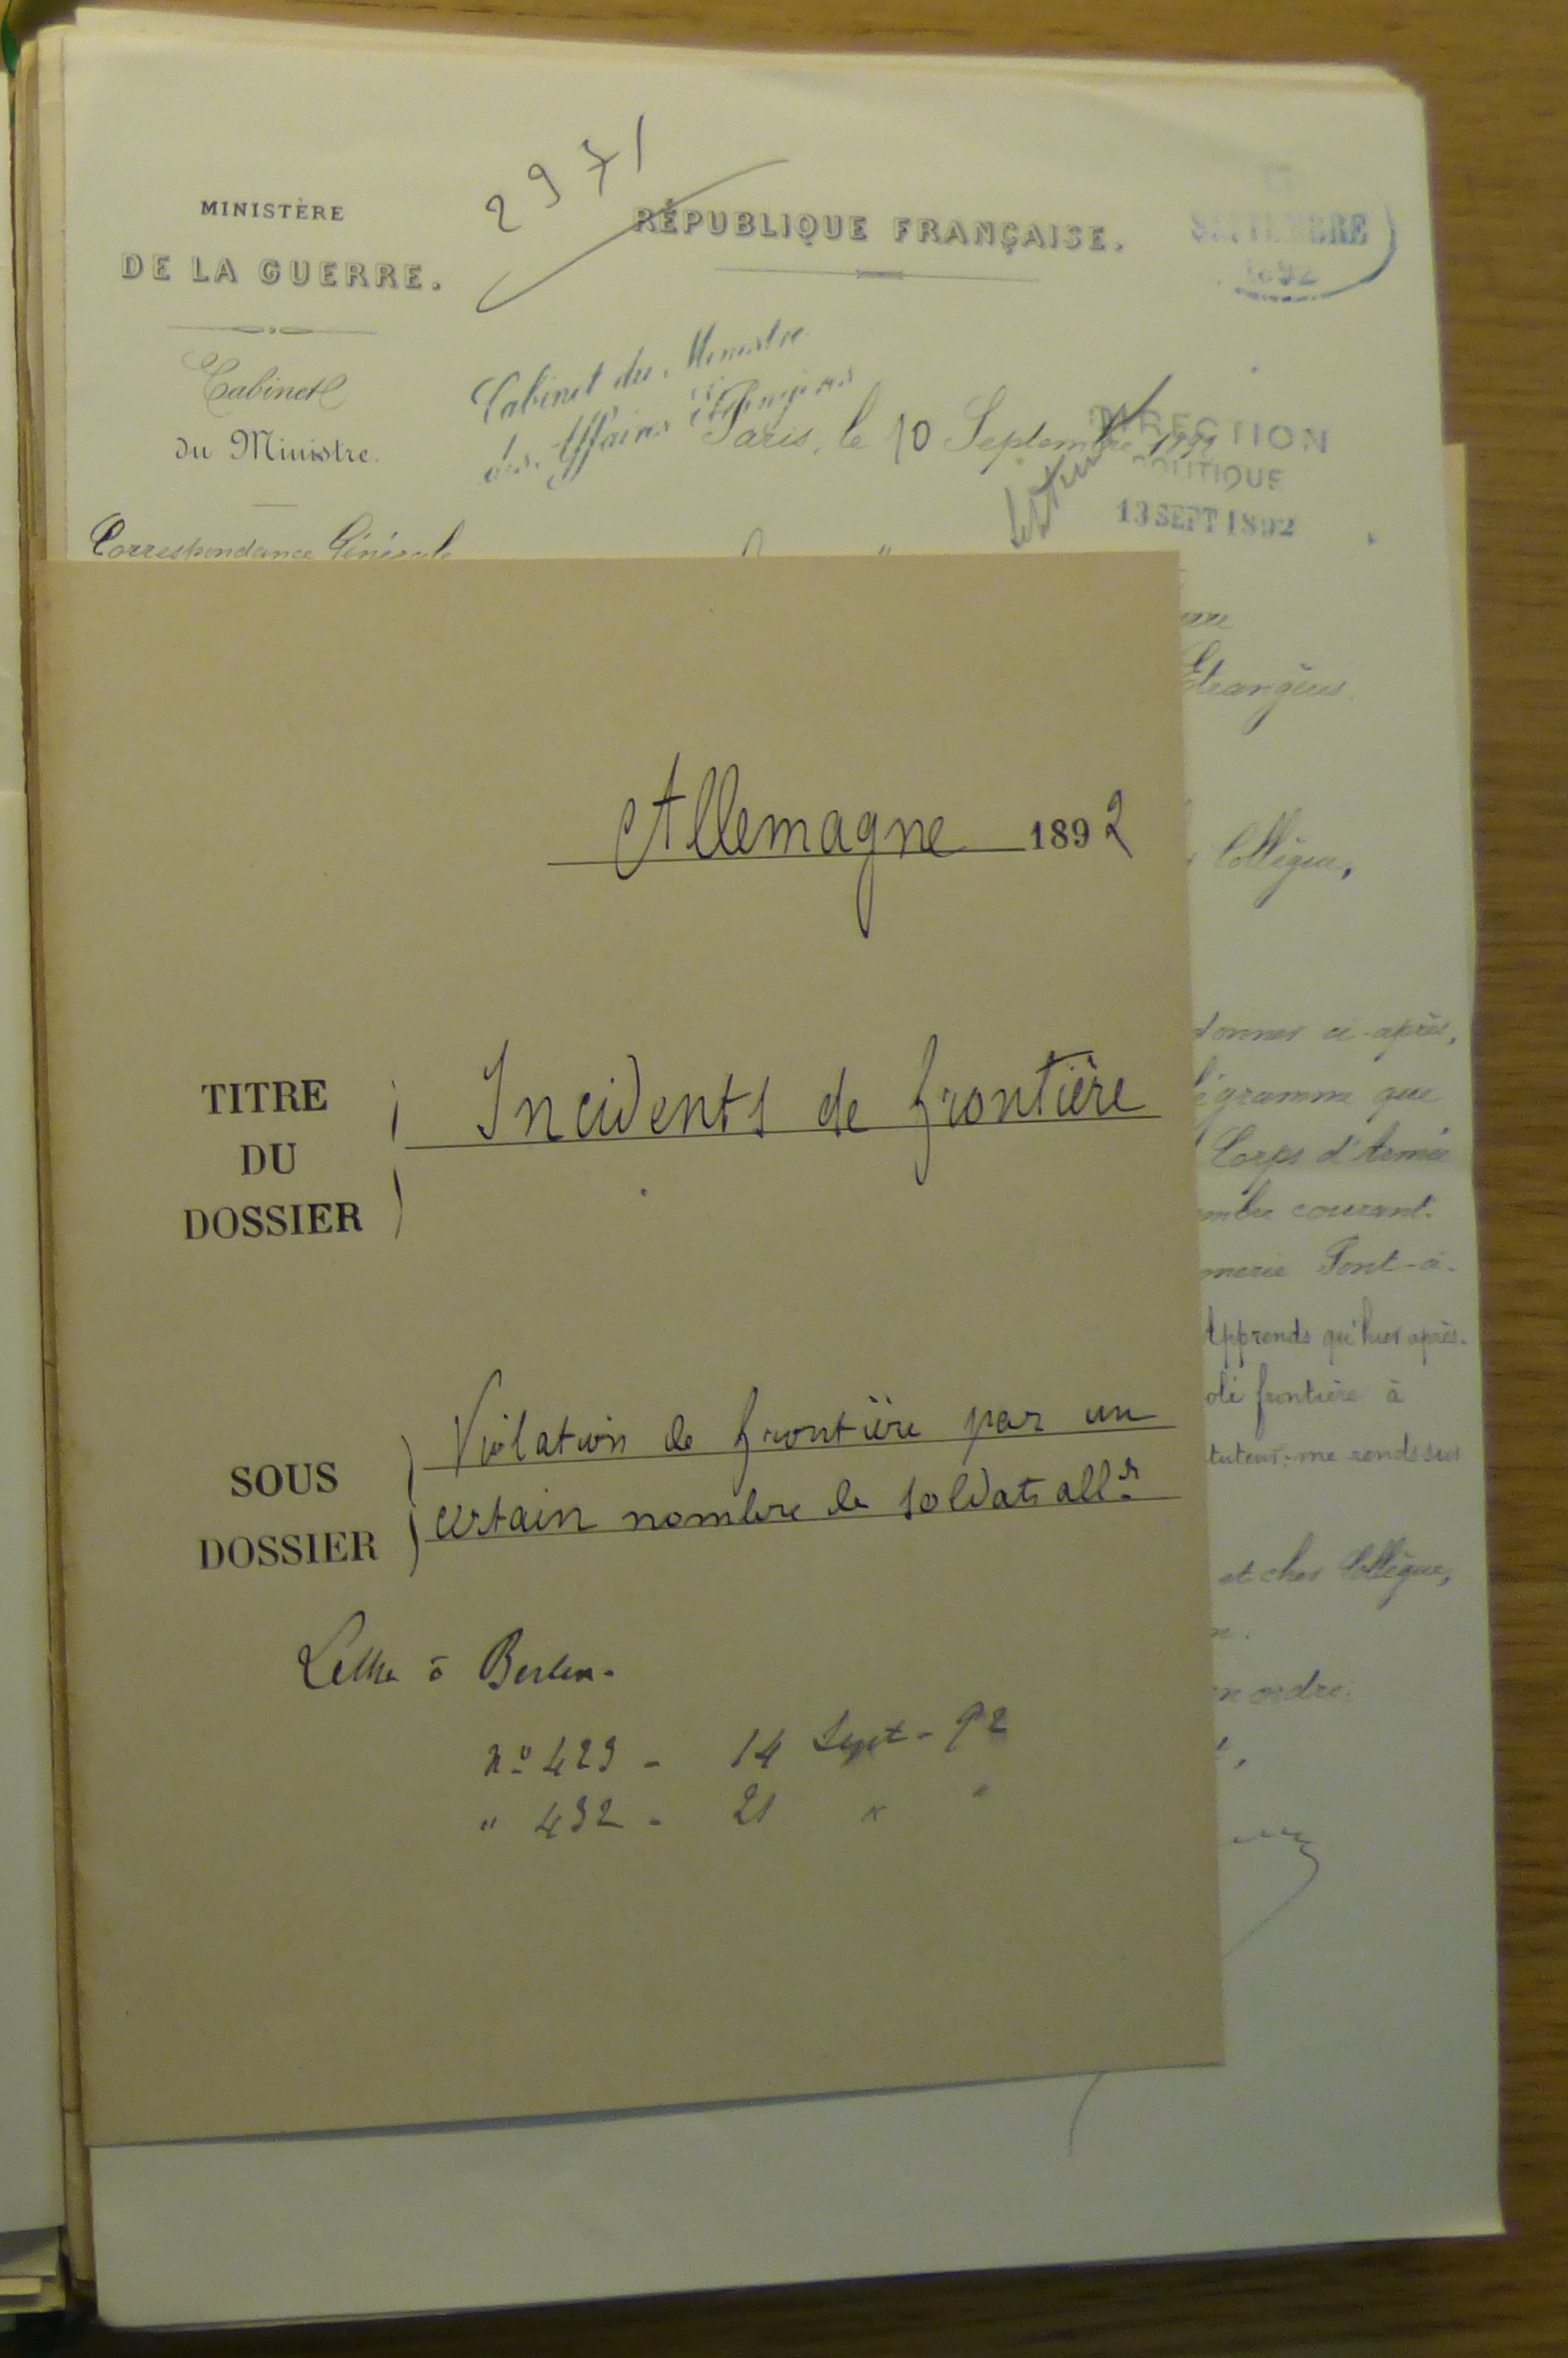 2971
MINISTÈRE
DE LA GUERRE.
RÉPUBLIQUE FRANÇAISE.
SEPTEMBRE
1892
Cabinet
du Ministre.
Cabinet du Ministre
des Affaires Etrangères
Paris, le 10 Septembre 1892
DIRECTION
POLITIQUE
13 SEPT 1892
Correspondance Générale
Etrangères.
Collègue,
donner ci-après,
légramme que
Corps d'Armée
embre courant.
merie Pont-à-
Apprends qu'hier après-
olé frontière à
tuteur; me rends sur
et cher Collègue,
n ordre:
Allemagne 1892
TITRE
DU
DOSSIER
Incidents de frontière
SOUS
DOSSIER
Violation de frontière par un
certain nombre de soldats alls
Lettre à Berlin.
nº 429 - 14 Sept - 92
" 432 - 21 " "